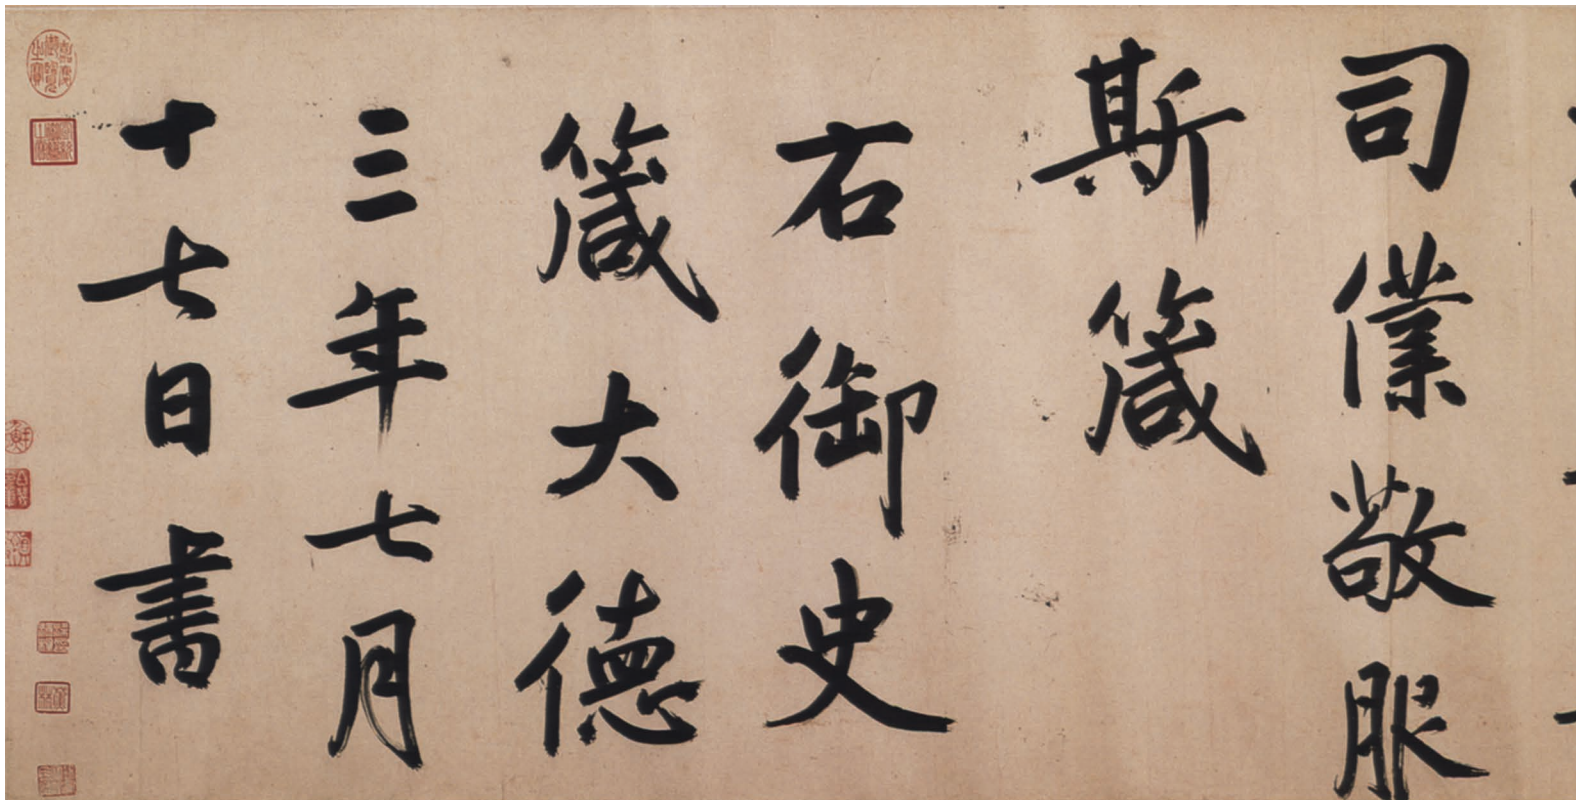 司僕敬服
斯箴
右御史
箴大德
三年七月
十七日書